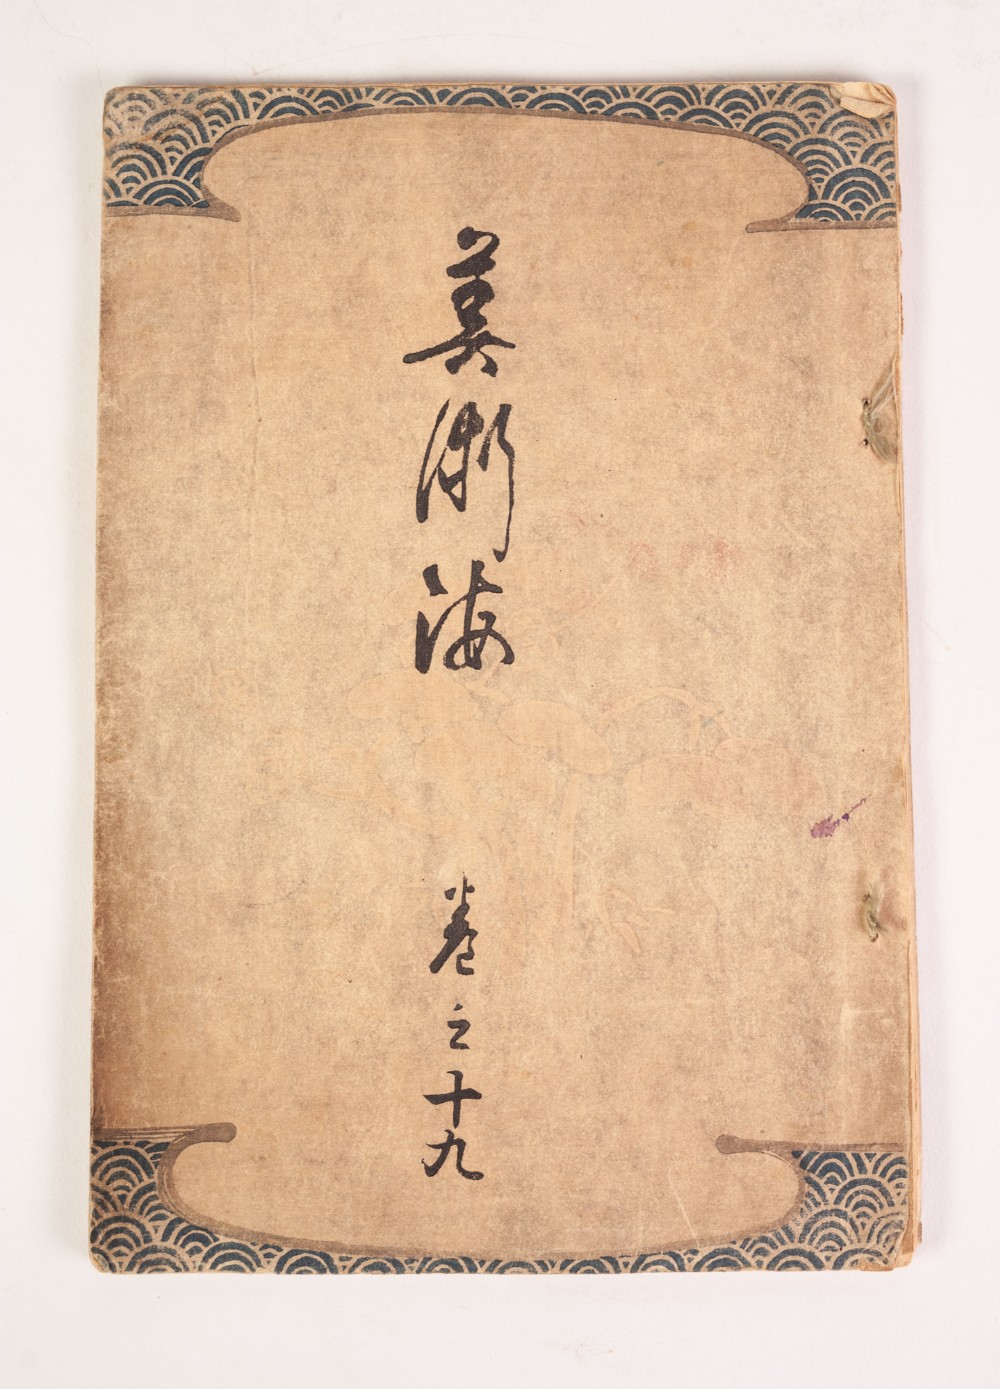 美術海
巻之十九